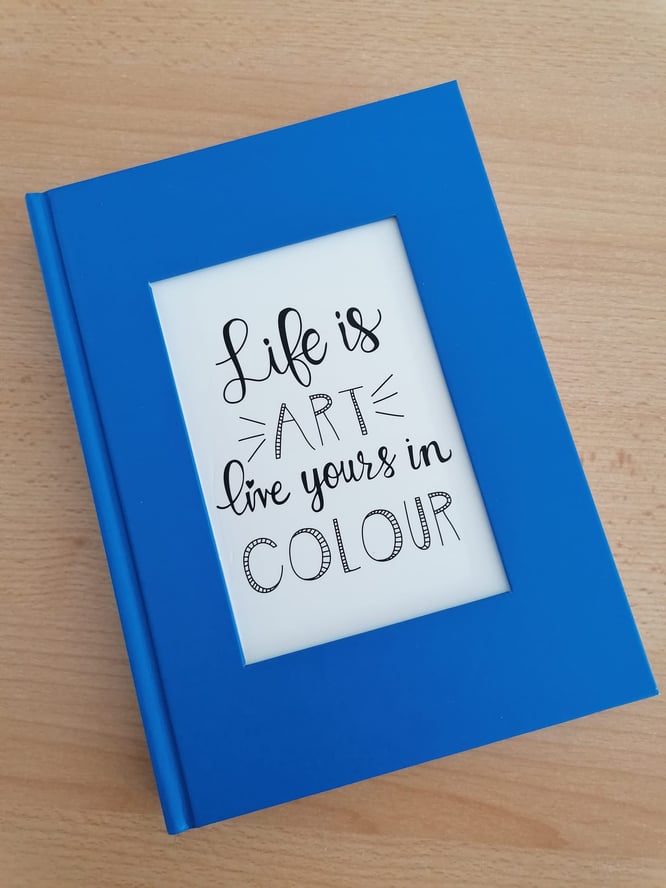 Life is
ART
live yours in
COLOUR